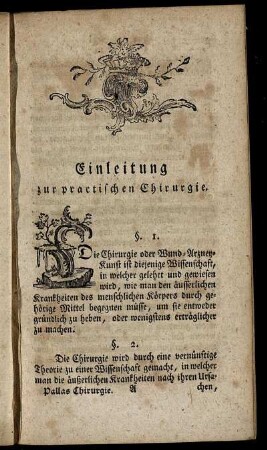 Einleitung
zur practischen Chirurgie.
§. 1.
Die Chirurgie oder Wund-Arzney-
Kunst ist diejenige Wissenschaft,
in welcher gelehrt und gewiesen
wird, wie man den äusserlichen
Krankheiten des menschlichen Körpers durch ge-
hörige Mittel begegnen müsse, um sie entweder
gründlich zu heben, oder wenigstens erträglicher
zu machen.
§. 2.
Die Chirurgie wird durch eine vernünftige
Theorie zu einer Wissenschaft gemacht, in welcher
man die äußerlichen Krankheiten nach ihren Ursa-
Pallas Chirurgie. A chen,